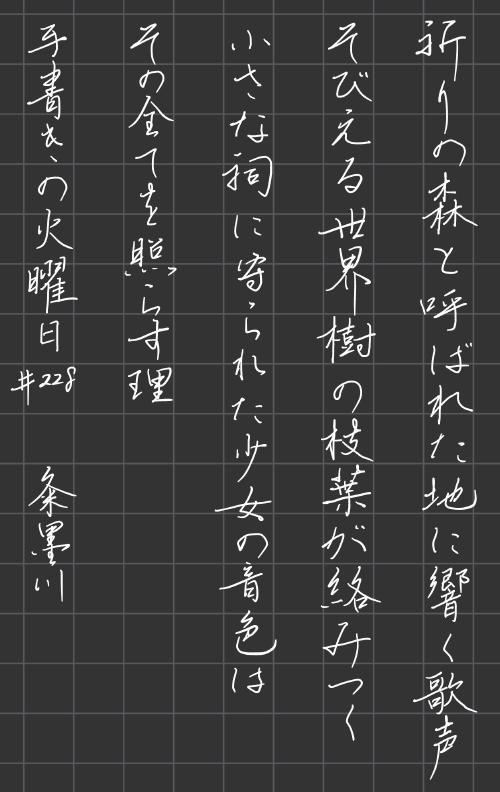 祈りの森と呼ばれた地に響く歌声
そびえる世界樹の枝葉が絡みつく
小さな祠に寄られた少女の音色は
その全てを照らす理
手書きの火曜日
#228
粂墨川